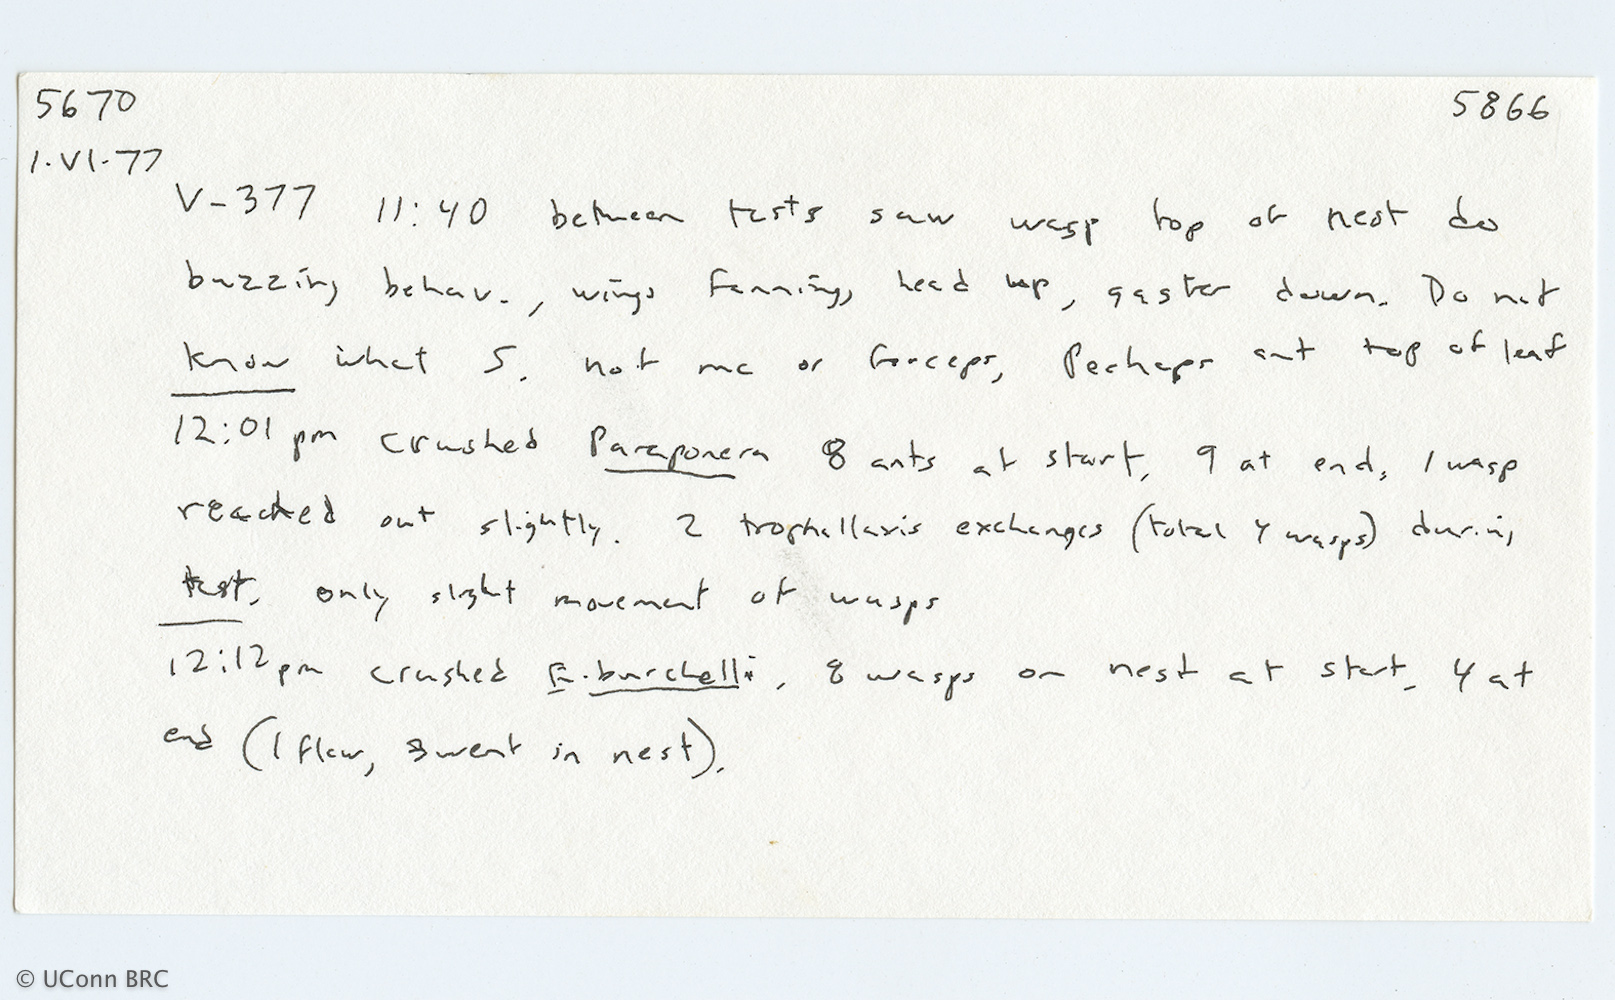 5670 5866
1·VI·77
V-377 11:40 between tests saw wasp top of nest do
buzzing behav., wings fanning, head up, gaster down. Do not
know what S. not me or forceps, Perhaps ant top of leaf
12:01 pm crushed Paraponera 8 ants at start, 9 at end, 1 wasp
reached out slightly. 2 trophallaxis exchanges (total 4 wasps) during
test, only slight movement of wasps
12:12 pm crushed E. burchelli, 8 wasps on nest at start, 4 at
end (1 flew, 3 went in nest).
© UConn BRC